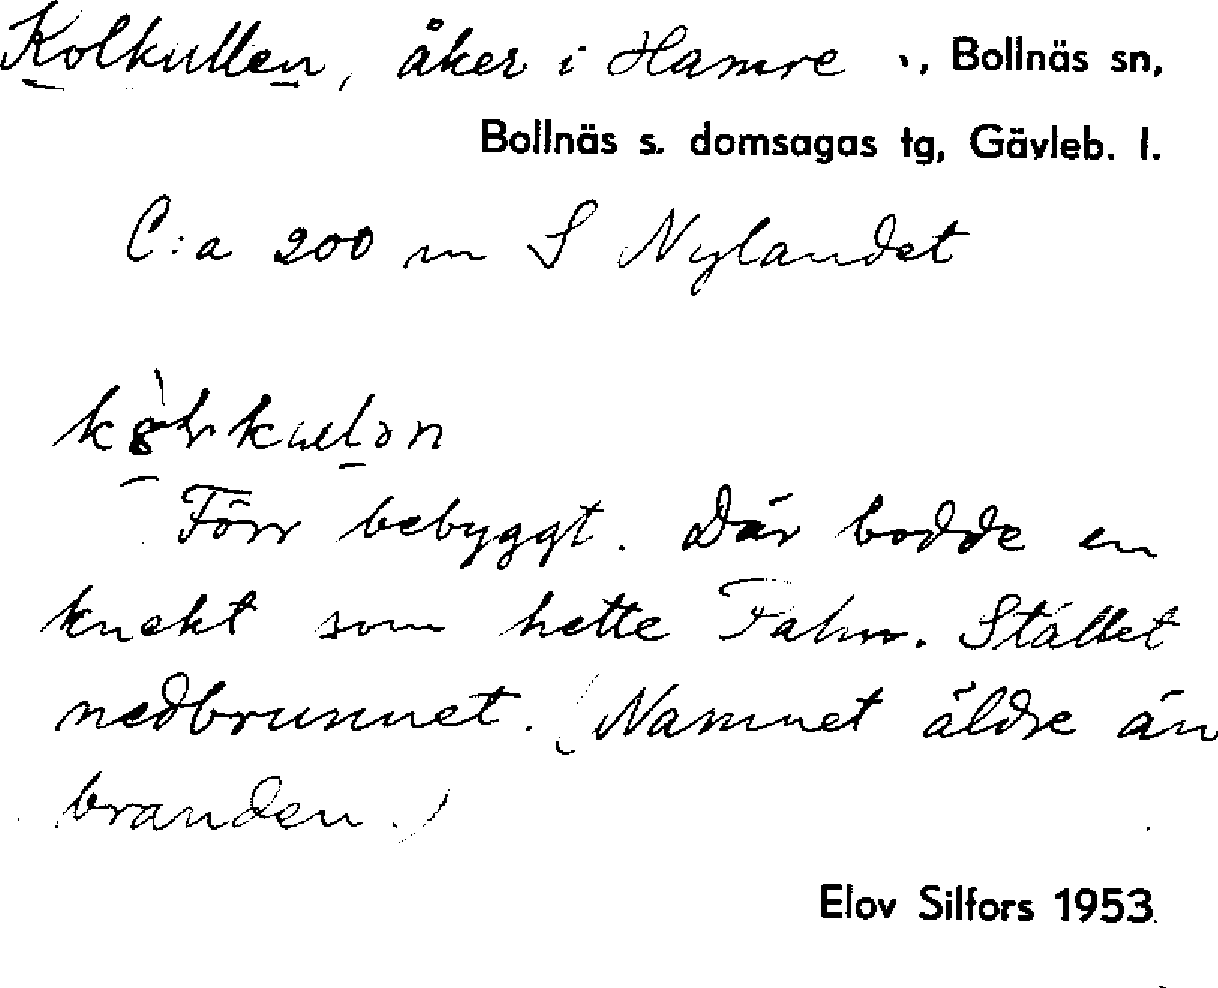 Kolkullen, åker i Hamre , Bollnäs sn,
Bollnäs s. domsagas tg, Gävleb. l.
C:a 200 m S Nylandet
Förr bebyggt. Där bodde en
knekt som hette Falm. Stället
nedbrunnet. (Namnet äldre än
branden.)
Elov Silfors 1953